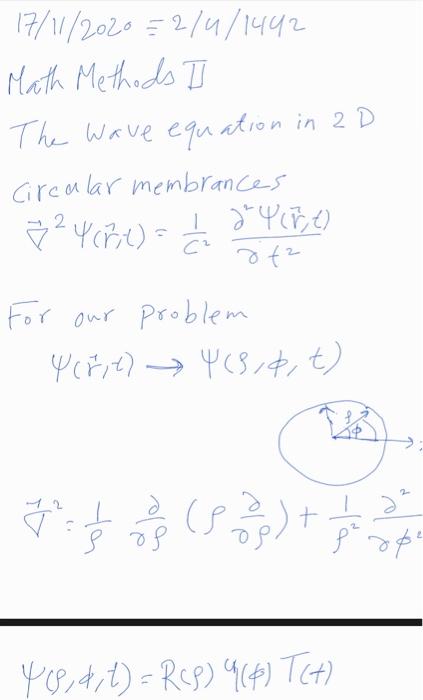 17/11/2020 = 2/4/1442
Math Methods II
The Wave equation in 2 D
Circular membrances
∇⃗² Ψ(r⃗,t) = 1/c² ∂²Ψ(r⃗,t)/∂t²
For our problem
Ψ(r⃗,t) → Ψ(ρ,ϕ,t)
ρ
ϕ
∇⃗² = 1/ρ ∂/∂ρ (ρ ∂/∂ρ) + 1/ρ² ∂²/∂ϕ²
Ψ(ρ,ϕ,t) = R(ρ) φ(ϕ) T(t)